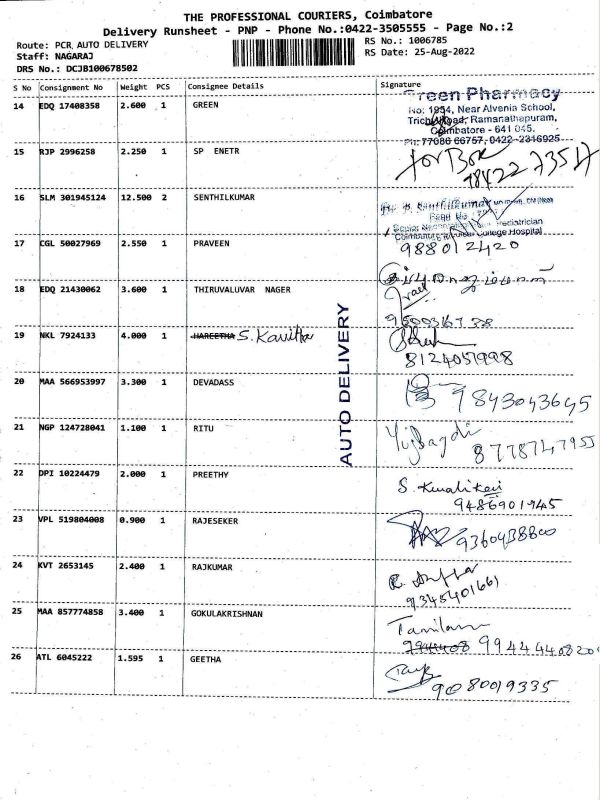 THE PROFESSIONAL COURIERS, Coimbatore
Delivery Runsheet - PNP - Phone No.:0422-3505555 - Page No.:2
Route: PCR, AUTO DELIVERY
RS No.: 1006785
Staff: NAGARAJ
RS Date: 25-Aug-2022
DRS No.: DCJB100678502
S No Consignment No Weight PCS Consignee Details Signature
14 EDQ 17408358 2.600 1 GREEN
Green Pharmacy
No: 1954, Near Alvenia School,
Trichy Road, Ramanathapuram,
Coimbatore - 641 045.
Ph: 77086 66757, 0422-2316925
15 RJP 2996258 2.250 1 SP ENETR
16 SLM 301945124 12.500 2 SENTHILKUMAR
College Hospital
17 CGL 50027969 2.550 1 PRAVEEN
988012420
18 EDQ 21430062 3.600 1 THIRUVALUVAR NAGER
19 NKL 7924133 4.000 1 HAREETHA S. Kavitha
8124051998
20 MAA 566953997 3.300 1 DEVADASS
9843043645
21 NGP 124728041 1.100 1 RITU
8778747955
22 DPI 10224479 2.000 1 PREETHY
9486901945
23 VPL 519804008 0.900 1 RAJESEKER
9360438800
24 KVT 2653145 2.400 1 RAJKUMAR
9345401661
25 MAA 857774858 3.400 1 GOKULAKRISHNAN
9944440820
26 ATL 6045222 1.595 1 GEETHA
9080019335
AUTO DELIVERY